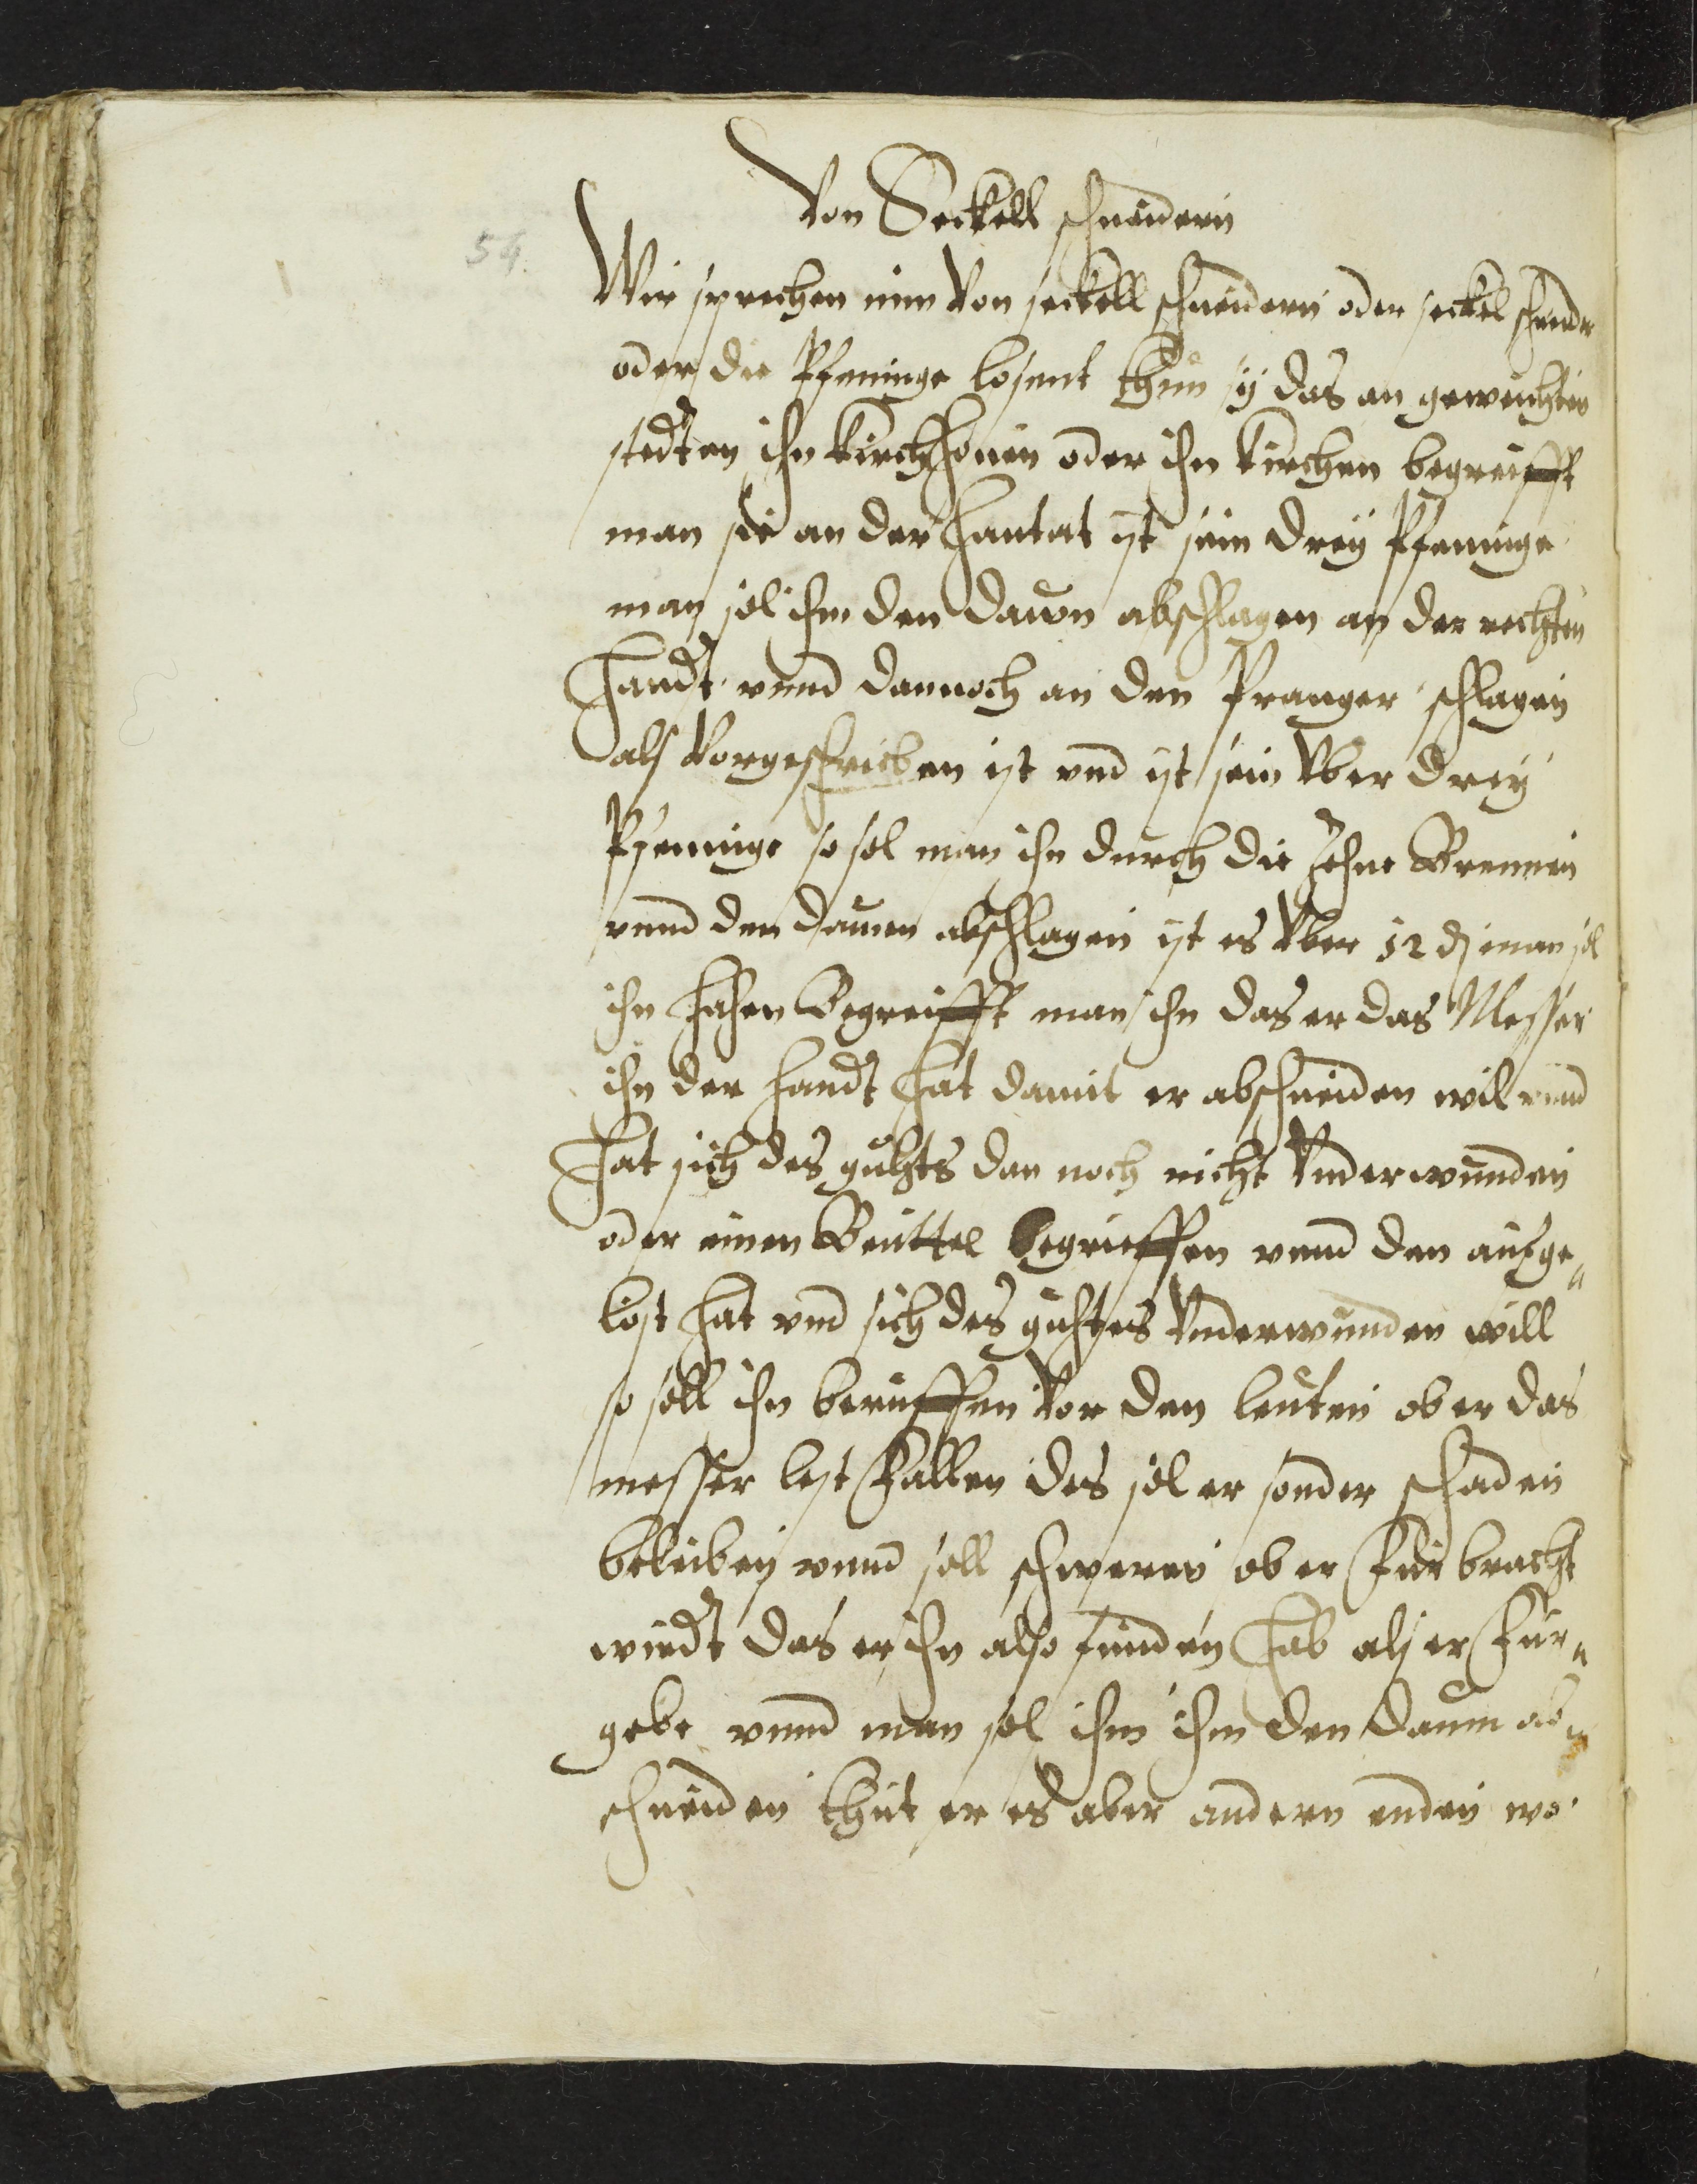 Von Seckell schneidern
54.
Wir sprechen nun Von seckell schneidern oder seckel schende
oder die Pfeninge losent thun sÿ das an geweichten
stedten ihn Kirchhouen oder ihn Kirchen begreifft
man sie an der Hantat ist sein dreÿ Pfeninge
man sol ihm den daumn abschlagen an der rechten
Handt vnnd dannoch an den Pranger schlagen
als Vorgeschrieben ist vnd ist sein Vber dreÿ
Pfeninge so sol man ihn durch die Zehne Brennen
vnnd den daumen abschlagen ist es Vber 12 d man sol
ihn hahen Begreifft man ihn das er das Messer
ihn der handt hat damit er abschneiden wil vnnd
Hat sich des guhts dan noch nicht Vnderwunden
oder einen Beuttel begrieffen vnnd den aufge„
lost hat vnd sich des guhtes Vnderwunden will
so soll ihn beruffen Vor den leuten ob er das
messer lest fallen des sol er sonder schaden
bleiben vnnd soll schweren ob er fur bracht
wirdt das er ihn also funden hab als er fur„
gebe vnnd man sol ihm ihm den daum ab„
schneiden thut er es aber andern enden wo